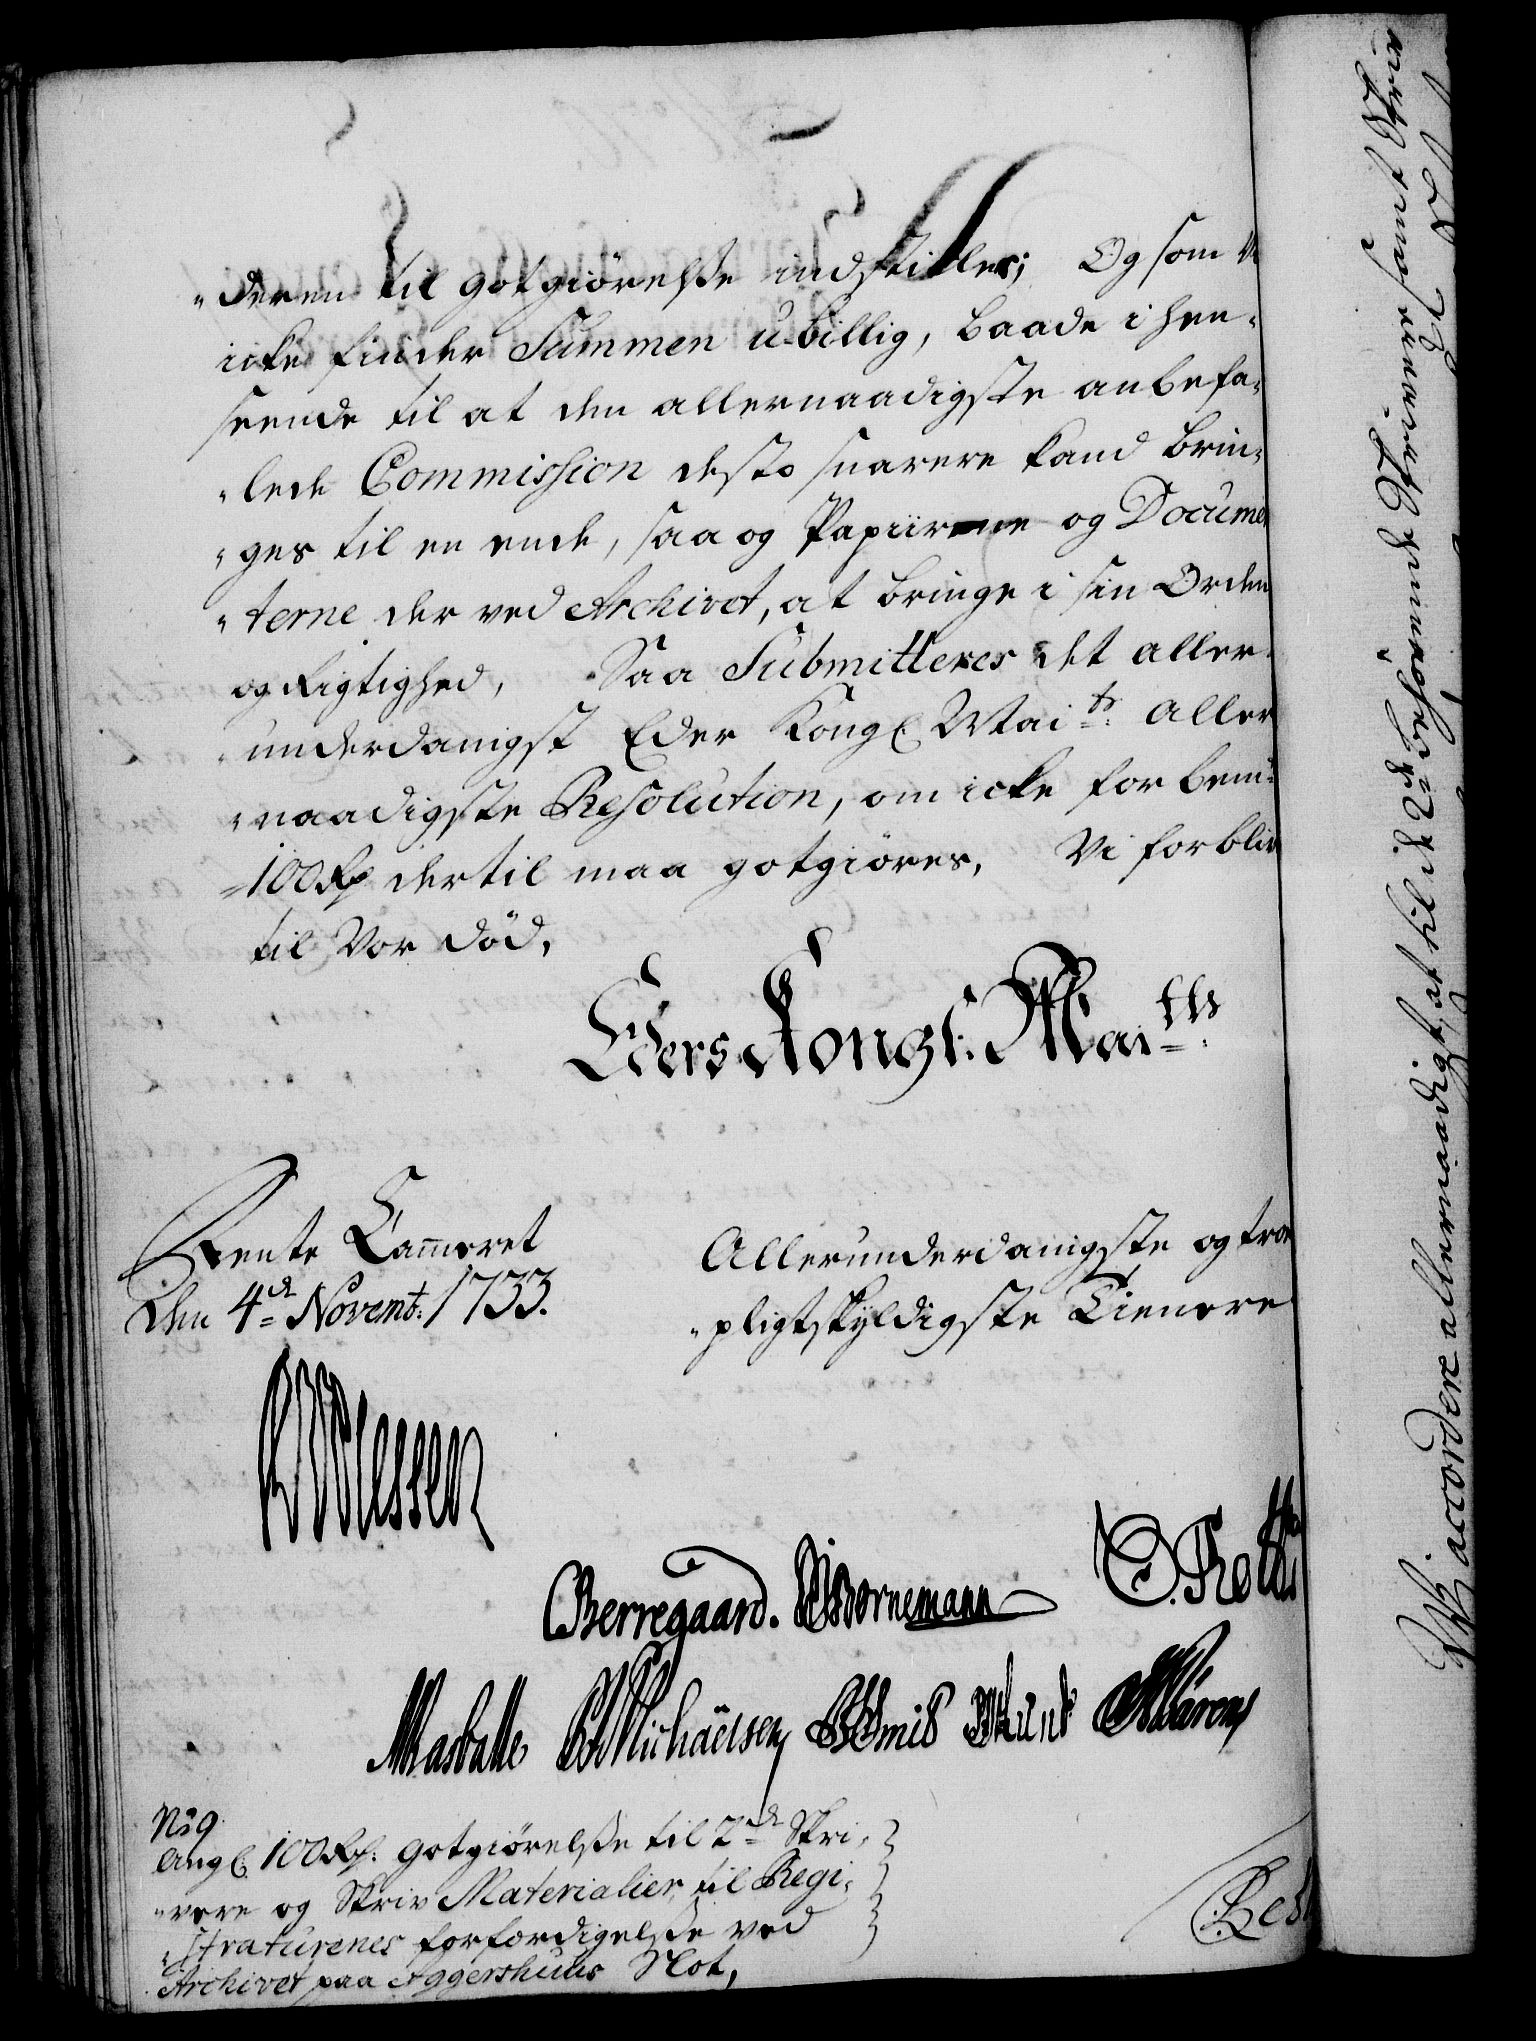 "deren til gotgiørelsse indstiller; Og som Vi
icke finder Summen ubillig, baade i hen-
seende til at den allernaadigste anbefa-
"lede Commission desto snarere kand brin-
"ges til en ende, saa og Papiirene og Documen
"terne der ved Archivet, at bringe i sin Orden
og Rigtighed, Saa Submitteres det aller-
"underdanigst Eder Kongl. Mai.ts aller
"naadigste Resolution, om icke forbem.te
100 Rd dertil maa gotgiøres, Vi forbliv
til Vor død,
Eders Kongl. Mai.ths
Rente Cammeret
den 4.de Novemb: 1733.
Allerunderdanigste og troe
"pligtskyldigste Tienere
Berregaard. Bornemann
Michaelsen Munk
N: 9.
Ang. 100 Rd. gotgiørelsse til 2.de Skri-
"vere og Skriv Materialier til Regi-
"straturenes forfærdigelsse ved
Archivet paa Aggershuus Slot,
Res
Vi accordere allernaadigst, at til de 2.de behøvende Skrivere samt Skriv